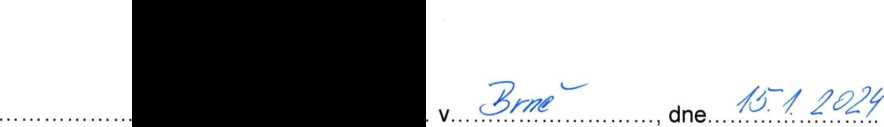 v Brně, dne 15.1.2024